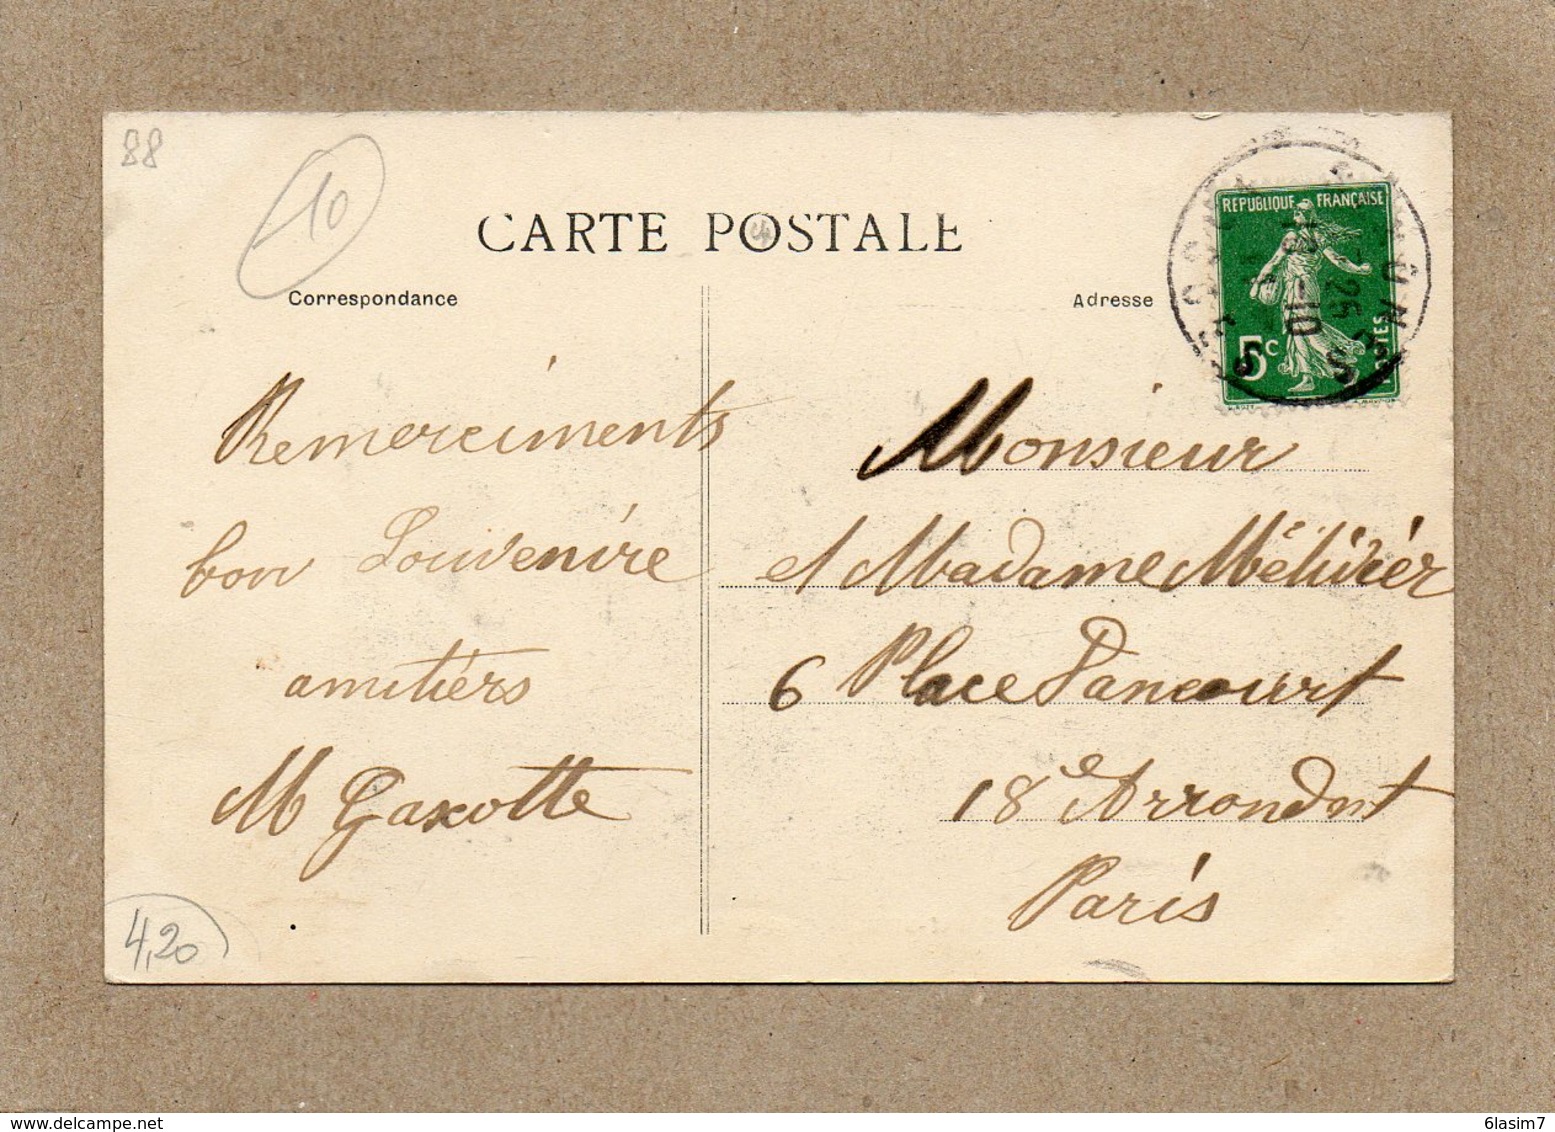 88
10
CARTE POSTALE
Correspondance
Adresse
REPUBLIQUE FRANÇAISE
POSTES
5c
25
10
Remerciments
bon Souvenire
amitiérs
M Gaxotte
Monsieur
et Madame Métivier
6 Place Dancourt
18e Arrondmt
Paris
4,20
6lasim7